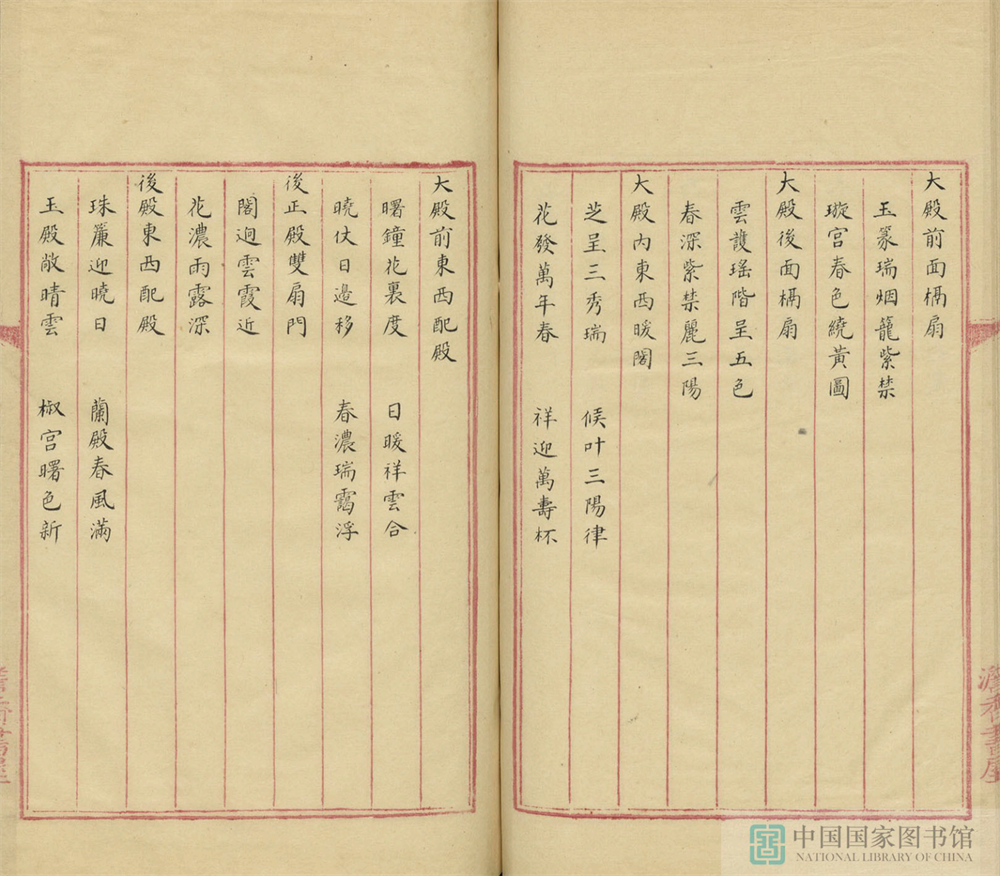 大殿前面槅扇
玉篆瑞烟籠紫禁
璇宮春色繞黃圖
大殿後面槅扇
雲護瑤階呈五色
春深紫禁麗三陽
大殿內東西暖閣
芝呈三秀瑞　候叶三陽律
花發萬年春　祥迎萬壽杯
大殿前東西配殿
曙鐘花裏度　日暖祥雲合
曉仗日邊移　春濃瑞靄浮
後正殿雙扇門
閣迥雲霞近
花濃雨露深
後殿東西配殿
珠簾迎曉日　蘭殿春風滿
玉殿敞晴雲　椒宮曙色新
中国国家图书馆
NATIONAL LIBRARY OF CHINA